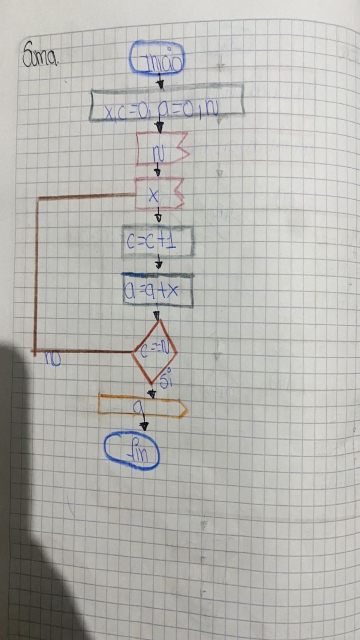 Suma
Inicio
x, c=0, a=0, n
N
x
c=c+1
a=a+x
c==N
no
si
a
fin